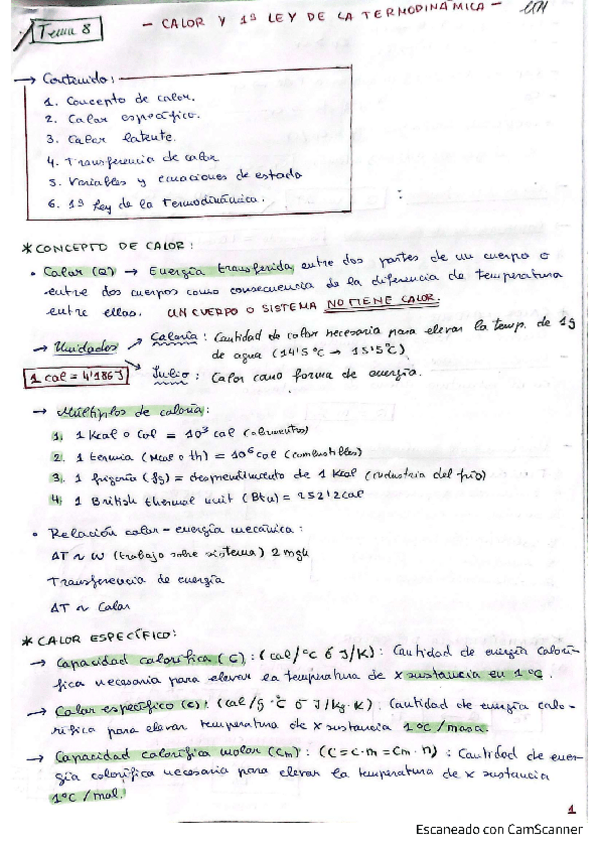 Tema 8
- CALOR Y 1ª LEY DE LA TERMODINÁMICA -
→ Contenido:
1. Concepto de calor.
2. Calor específico.
3. Calor latente.
4. Transferencia de calor
5. Variables y ecuaciones de estado
6. 1ª Ley de la Termodinámica.
* CONCEPTO DE CALOR:
• Calor (Q) → Energía transferida entre dos partes de un cuerpo o
entre dos cuerpos como consecuencia de la diferencia de temperatura
entre ellos. UN CUERPO O SISTEMA NO TIENE CALOR.
→ Unidades → Caloría: Cantidad de calor necesaria para elevar la temp. de 1g
de agua (14'5°C → 15'5°C)
1 cal = 4'186 J
Julio: Calor como forma de energía.
→ Múltiplos de caloría:
1. 1 Kcal o Cal = 10³ cal (alimentos)
2. 1 termia (Mcal o th) = 10⁶ cal (combustibles)
3. 1 frigoría (fg) = desprendimiento de 1 Kcal (industria del frío)
4. 1 British thermal unit (Btu) = 252'2 cal
• Relación calor - energía mecánica:
ΔT ~ W (trabajo sobre sistema) 2 mgh
Transferencia de energía
ΔT ~ Calor
* CALOR ESPECÍFICO:
→ Capacidad calorífica (C): (cal/°C ó J/K): Cantidad de energía calorí-
fica necesaria para elevar la temperatura de x sustancia en 1°C.
→ Calor específico (c): (cal/g·°C ó J/kg·K): Cantidad de energía calo-
rífica para elevar temperatura de x sustancia 1°C/masa.
→ Capacidad calorífica molar (Cm): (C = c·m = Cm·n): Cantidad de ener-
gía calorífica necesaria para elevar la temperatura de x sustancia
1°C/mol.
1
Escaneado con CamScanner